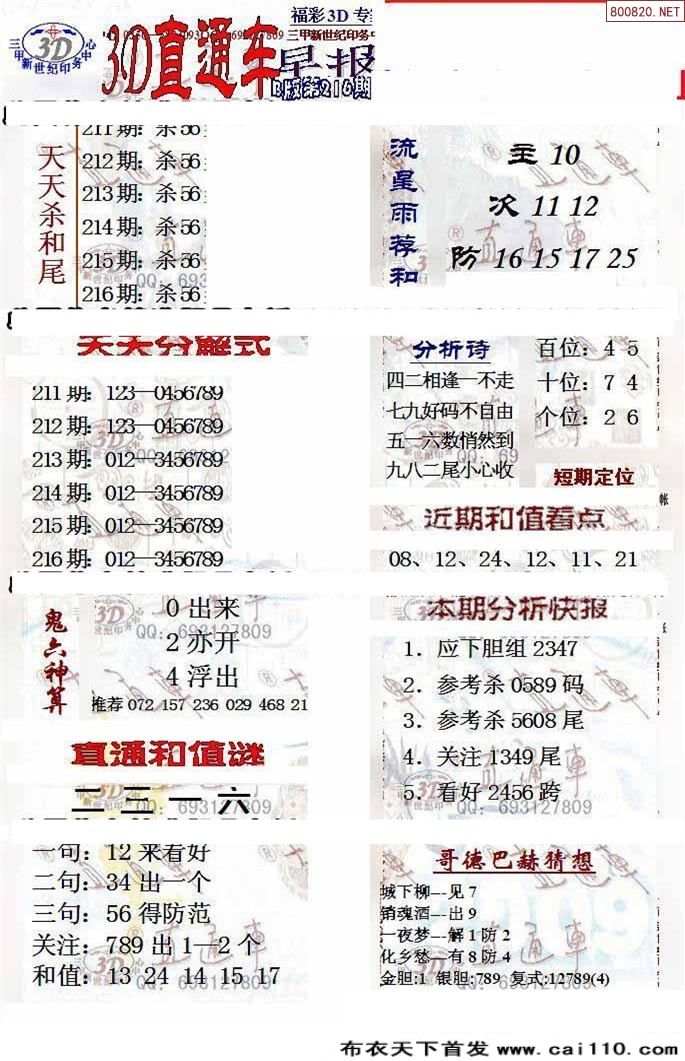 福彩3D 专
800820.NET
三甲新世纪印务中心
3D
3D直通车
三甲新世纪印务中
早报
B版第216期
天天杀和尾
211期: 杀56
212期: 杀56
213期: 杀56
214期: 杀56
215期: 杀56
216期: 杀56
流星雨荐和
主 10
次 11 12
防 16 15 17 25
天天分解式
211期: 123—0456789
212期: 123—0456789
213期: 012—3456789
214期: 012—3456789
215期: 012—3456789
216期: 012—3456789
分析诗
四二相逢一不走
七九好码不自由
五一六数悄然到
九八二尾小心收
百位: 4 5
十位: 7 4
个位: 2 6
短期定位
近期和值看点
08、12、24、12、11、21
鬼六神算
0 出来
2 亦开
4 浮出
QQ: 693127809
推荐 072 157 236 029 468 21
本期分析快报
1. 应下胆组 2347
2. 参考杀 0589 码
3. 参考杀 5608 尾
4. 关注 1349 尾
5. 看好 2456 跨
QQ: 693127809
直通和值谜
二 三 一 六
QQ: 693127809
一句: 12 来看好
二句: 34 出一个
三句: 56 得防范
关注: 789 出 1—2 个
和值: 13 24 14 15 17
QQ: 693127809
哥德巴赫猜想
城下柳---见 7
销魂酒---出 9
一夜梦---解 1 防 2
化乡愁---有 8 防 4
金胆:1 银胆:789 复式:12789(4)
布衣天下首发 www.cai110.com